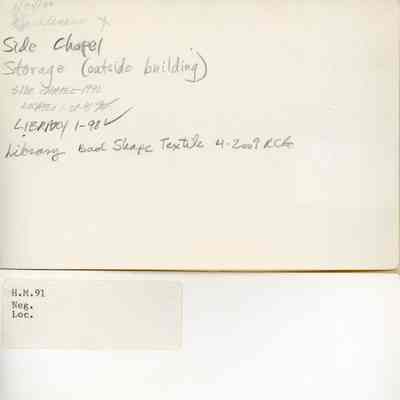 Side Chapel
Storage (outside building)
SIDE CHAPEL-1992
LIBRARY 1-98 ✓
Library Bad Shape Textile 4-2009 RCG
H.M.91
Neg.
Loc.